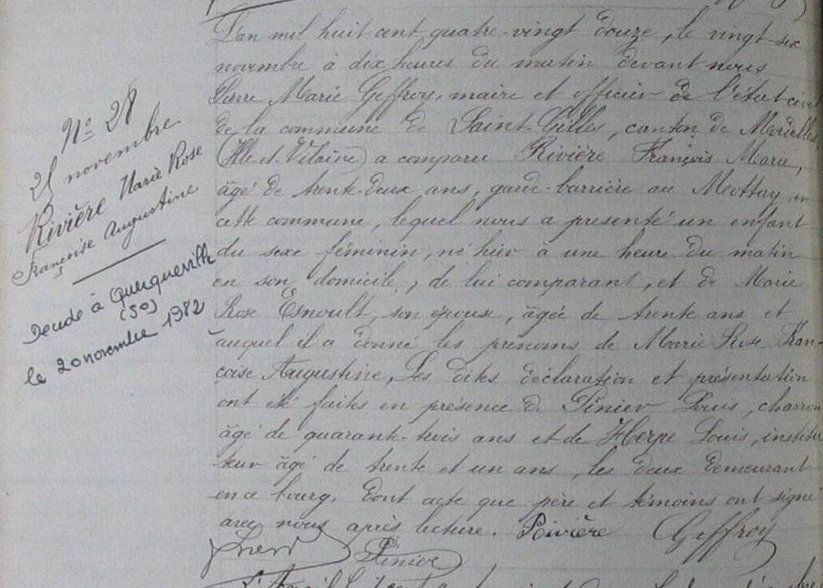 N° 28
25 novembre
Rivière Marie Rose
Françoise Augustine
Décédée à Querqueville
(50)
le 20 novembre 1982
L'an mil huit cent quatre-vingt douze, le vingt-six
novembre à dix heures du matin devant nous
Pierre Marie Geffroy, maire et officier de l'état civil
de la commune de Saint-Gilles, canton de Mordelles,
(Ille-et-Vilaine) a comparu Rivière François Marie,
âgé de trente-deux ans, garde-barrière au Mottay, en
cette commune, lequel nous a présenté un enfant
du sexe féminin, né hier à une heure du matin
en son domicile, de lui comparant, et de Marie
Rose Esnoult, son épouse, âgée de trente ans et
auquel il a donné les prénoms de Marie Rose Fran-
çoise Augustine, Les dites déclaration et présentation
ont été faits en présence de Pinier Louis, charron
âgé de quarante-trois ans et de Herpe Louis, institu
teur âgé de trente et un ans, les deux demeurant
en ce bourg. Dont acte que père et témoins ont signé
avec nous après lecture. Rivière Geffroy
Pinier